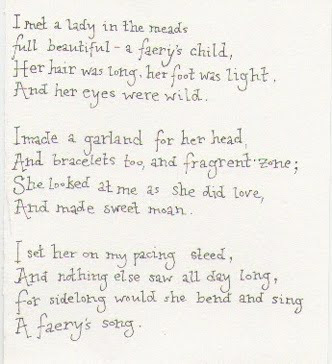 I met a lady in the meads
full beautiful - a faery's child,
Her hair was long, her foot was light,
And her eyes were wild.
I made a garland for her head,
And bracelets too, and fragrent zone;
She looked at me as she did love,
And made sweet moan.
I set her on my pacing steed,
And nothing else saw all day long,
for sidelong would she bend and sing
A faery's song.